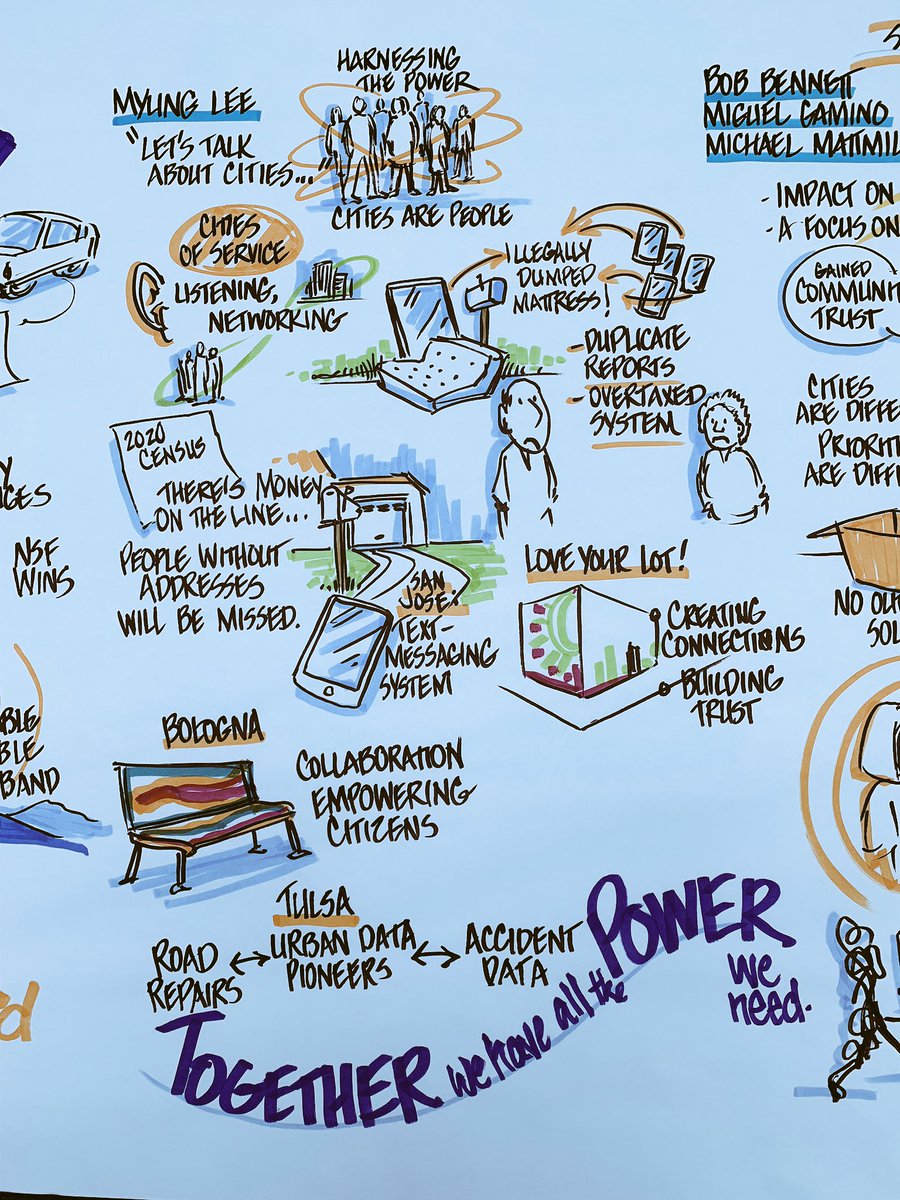 HARNESSING
THE POWER
MYUNG LEE
"LET'S TALK
ABOUT CITIES..."
CITIES ARE PEOPLE
CITIES
OF SERVICE
LISTENING,
NETWORKING
ILLEGALLY
DUMPED
MATTRESS!
- DUPLICATE
REPORTS
- OVERTAXED
SYSTEM
2020
CENSUS
THERE'S MONEY
ON THE LINE...
PEOPLE WITHOUT
ADDRESSES
WILL BE MISSED.
SAN
JOSE:
TEXT-
MESSAGING
SYSTEM
LOVE YOUR LOT!
CREATING
CONNECTIONS
BUILDING
TRUST
BOLOGNA
COLLABORATION
EMPOWERING
CITIZENS
TULSA
ROAD
REPAIRS
URBAN DATA
PIONEERS
ACCIDENT
DATA
TOGETHER we have all the POWER
we
need.
BOB BENNETT
MIGUEL GAMINO
MICHAEL
- IMPACT ON
- A FOCUS ON
GAINED
TRUST
CITIES
ARE
ARE
NO
NSF
WINS